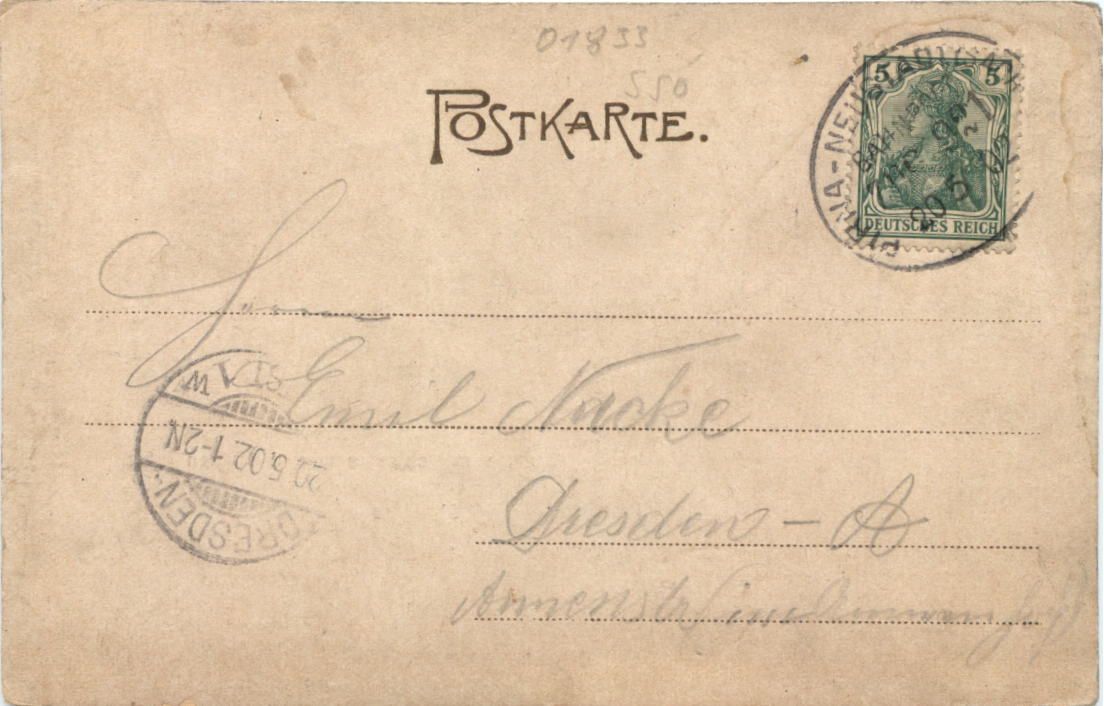 01833
550
POSTKARTE.
5 5
DEUTSCHES REICH
PIRNA-NEUSTADT
BAHNPOST
ZUG
Herrn
Emil Nacke
Dresden - A
Annenstr
DRESDEN-
20.5.02 1-2N